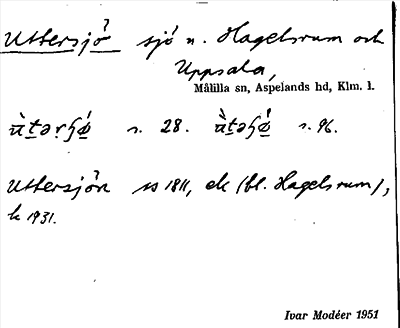 Uttersjö sjö n. Hagelsrum och
Uppsala,
Målilla sn, Aspelands hd, Klm. l.
s. 28. s. 96.
Uttersjön ss 1811, ek (bl. Hagelsrum),
k 1931.
Ivar Modéer 1951